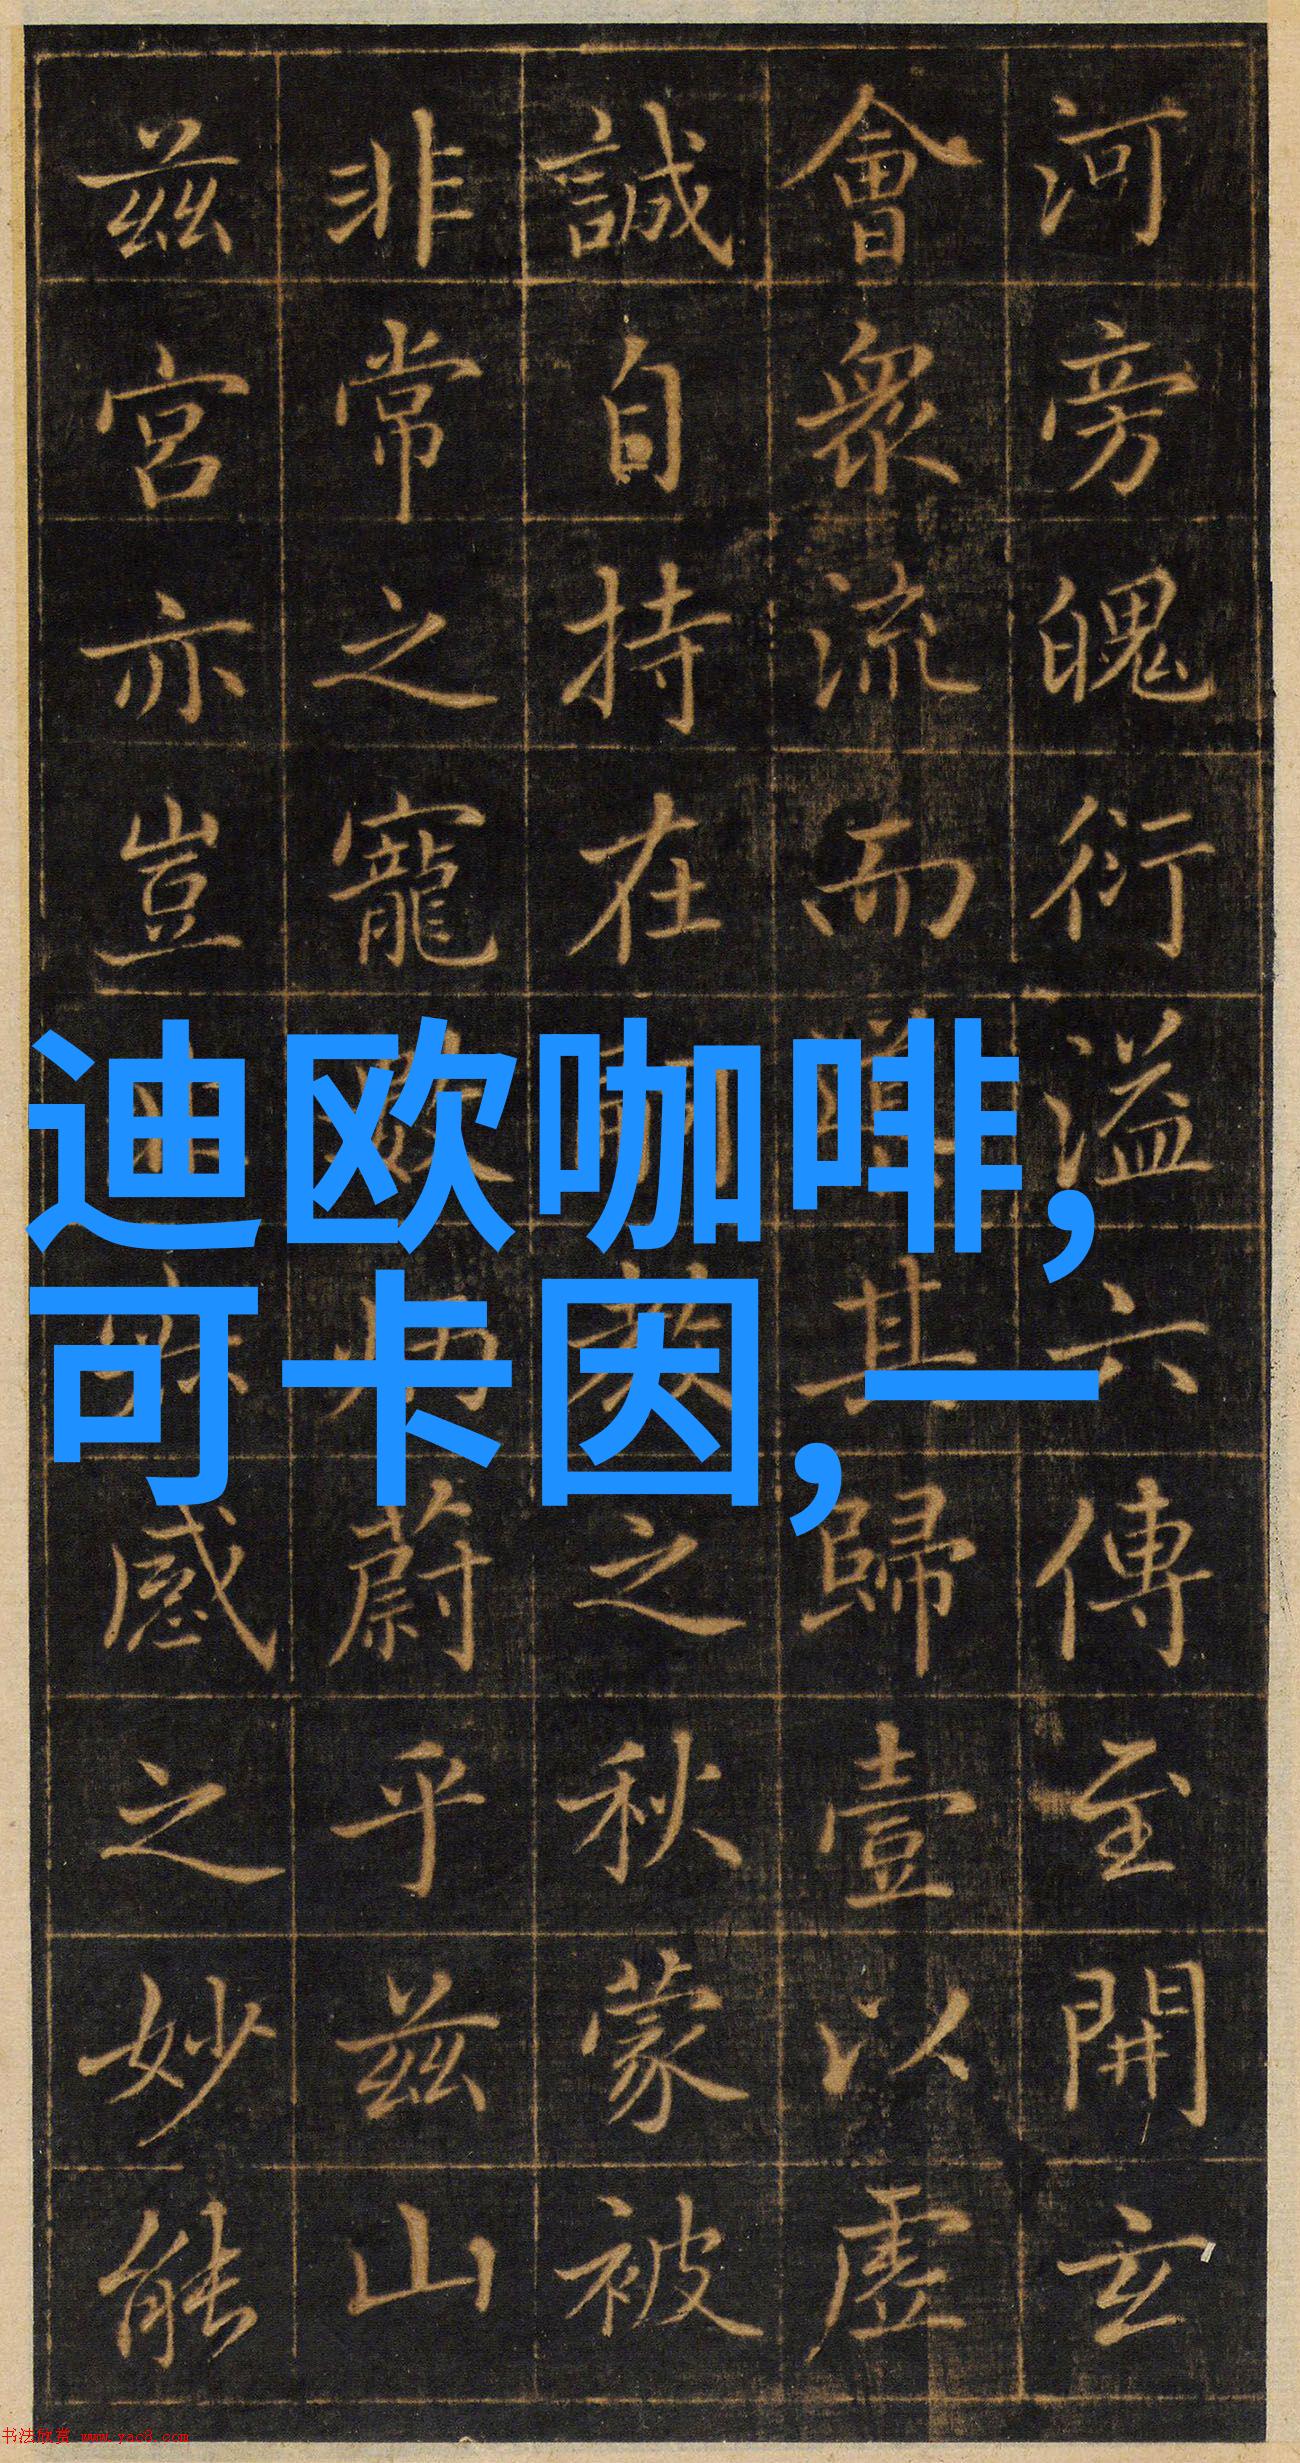 河旁魄衍溢六傳至開玄
會衆流而其歸壹以虛
誠自持在之秋蒙被
非常之寵炳蔚乎兹山
兹宮亦豈感之妙能
迪欧咖啡,
可卡因,一
书法欣赏 www.yac8.com